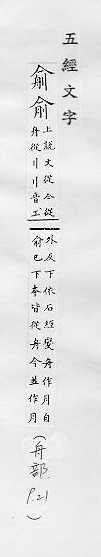 五經文字
兪俞
上說文從亼從
舟從巜巜音工
外反下依石經變舟作月自
俞已下本皆從舟今並作月
(舟部.
P.21)